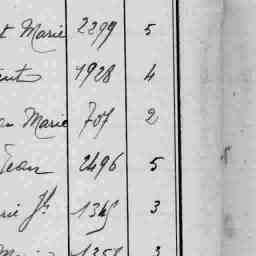 t Marie 2299 5
1928 4
Marie 707 2
Jean 2496 5
rie Jh 1345 3
1358 3